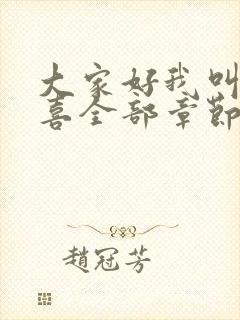 大家好我叫
喜全部章節
趙冠芳